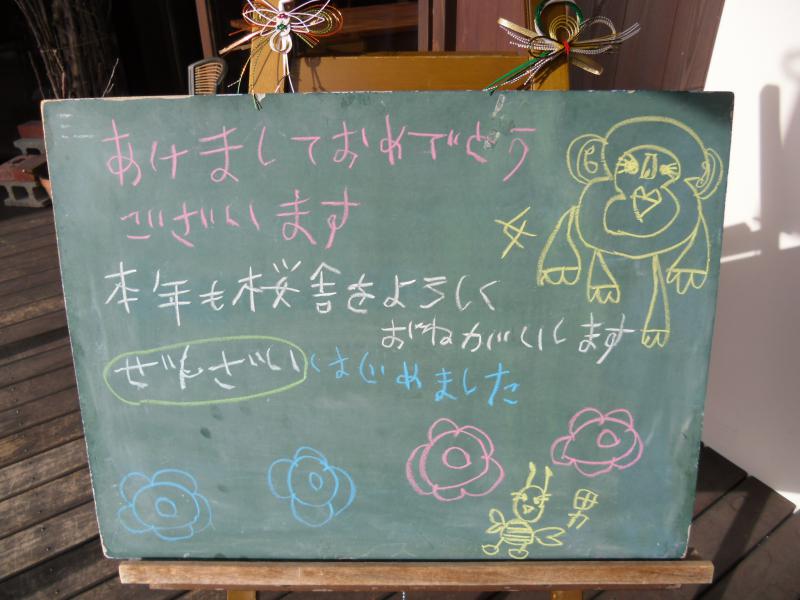 あけましておめでとう
ございます
本年も桜舎をよろしく
おねがいします
ぜんざいはじめました
男